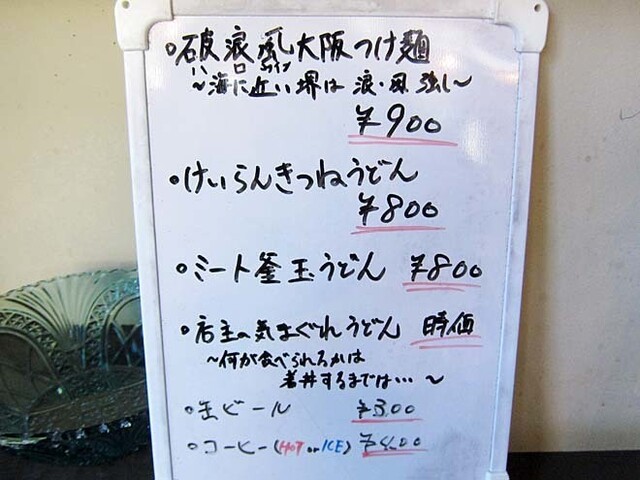 。破浪乱大阪つけ麺
ハロ
〜海に近い堺は 浪・風 強し〜
¥900
。けいらんきつねうどん
¥800
。ミート釜玉うどん ¥800
。店主の気まぐれうどん 時価
〜何が食べられるかは
着丼するまでは…〜
。缶ビール ¥300
。コーヒー(HOT or ICE) ¥400